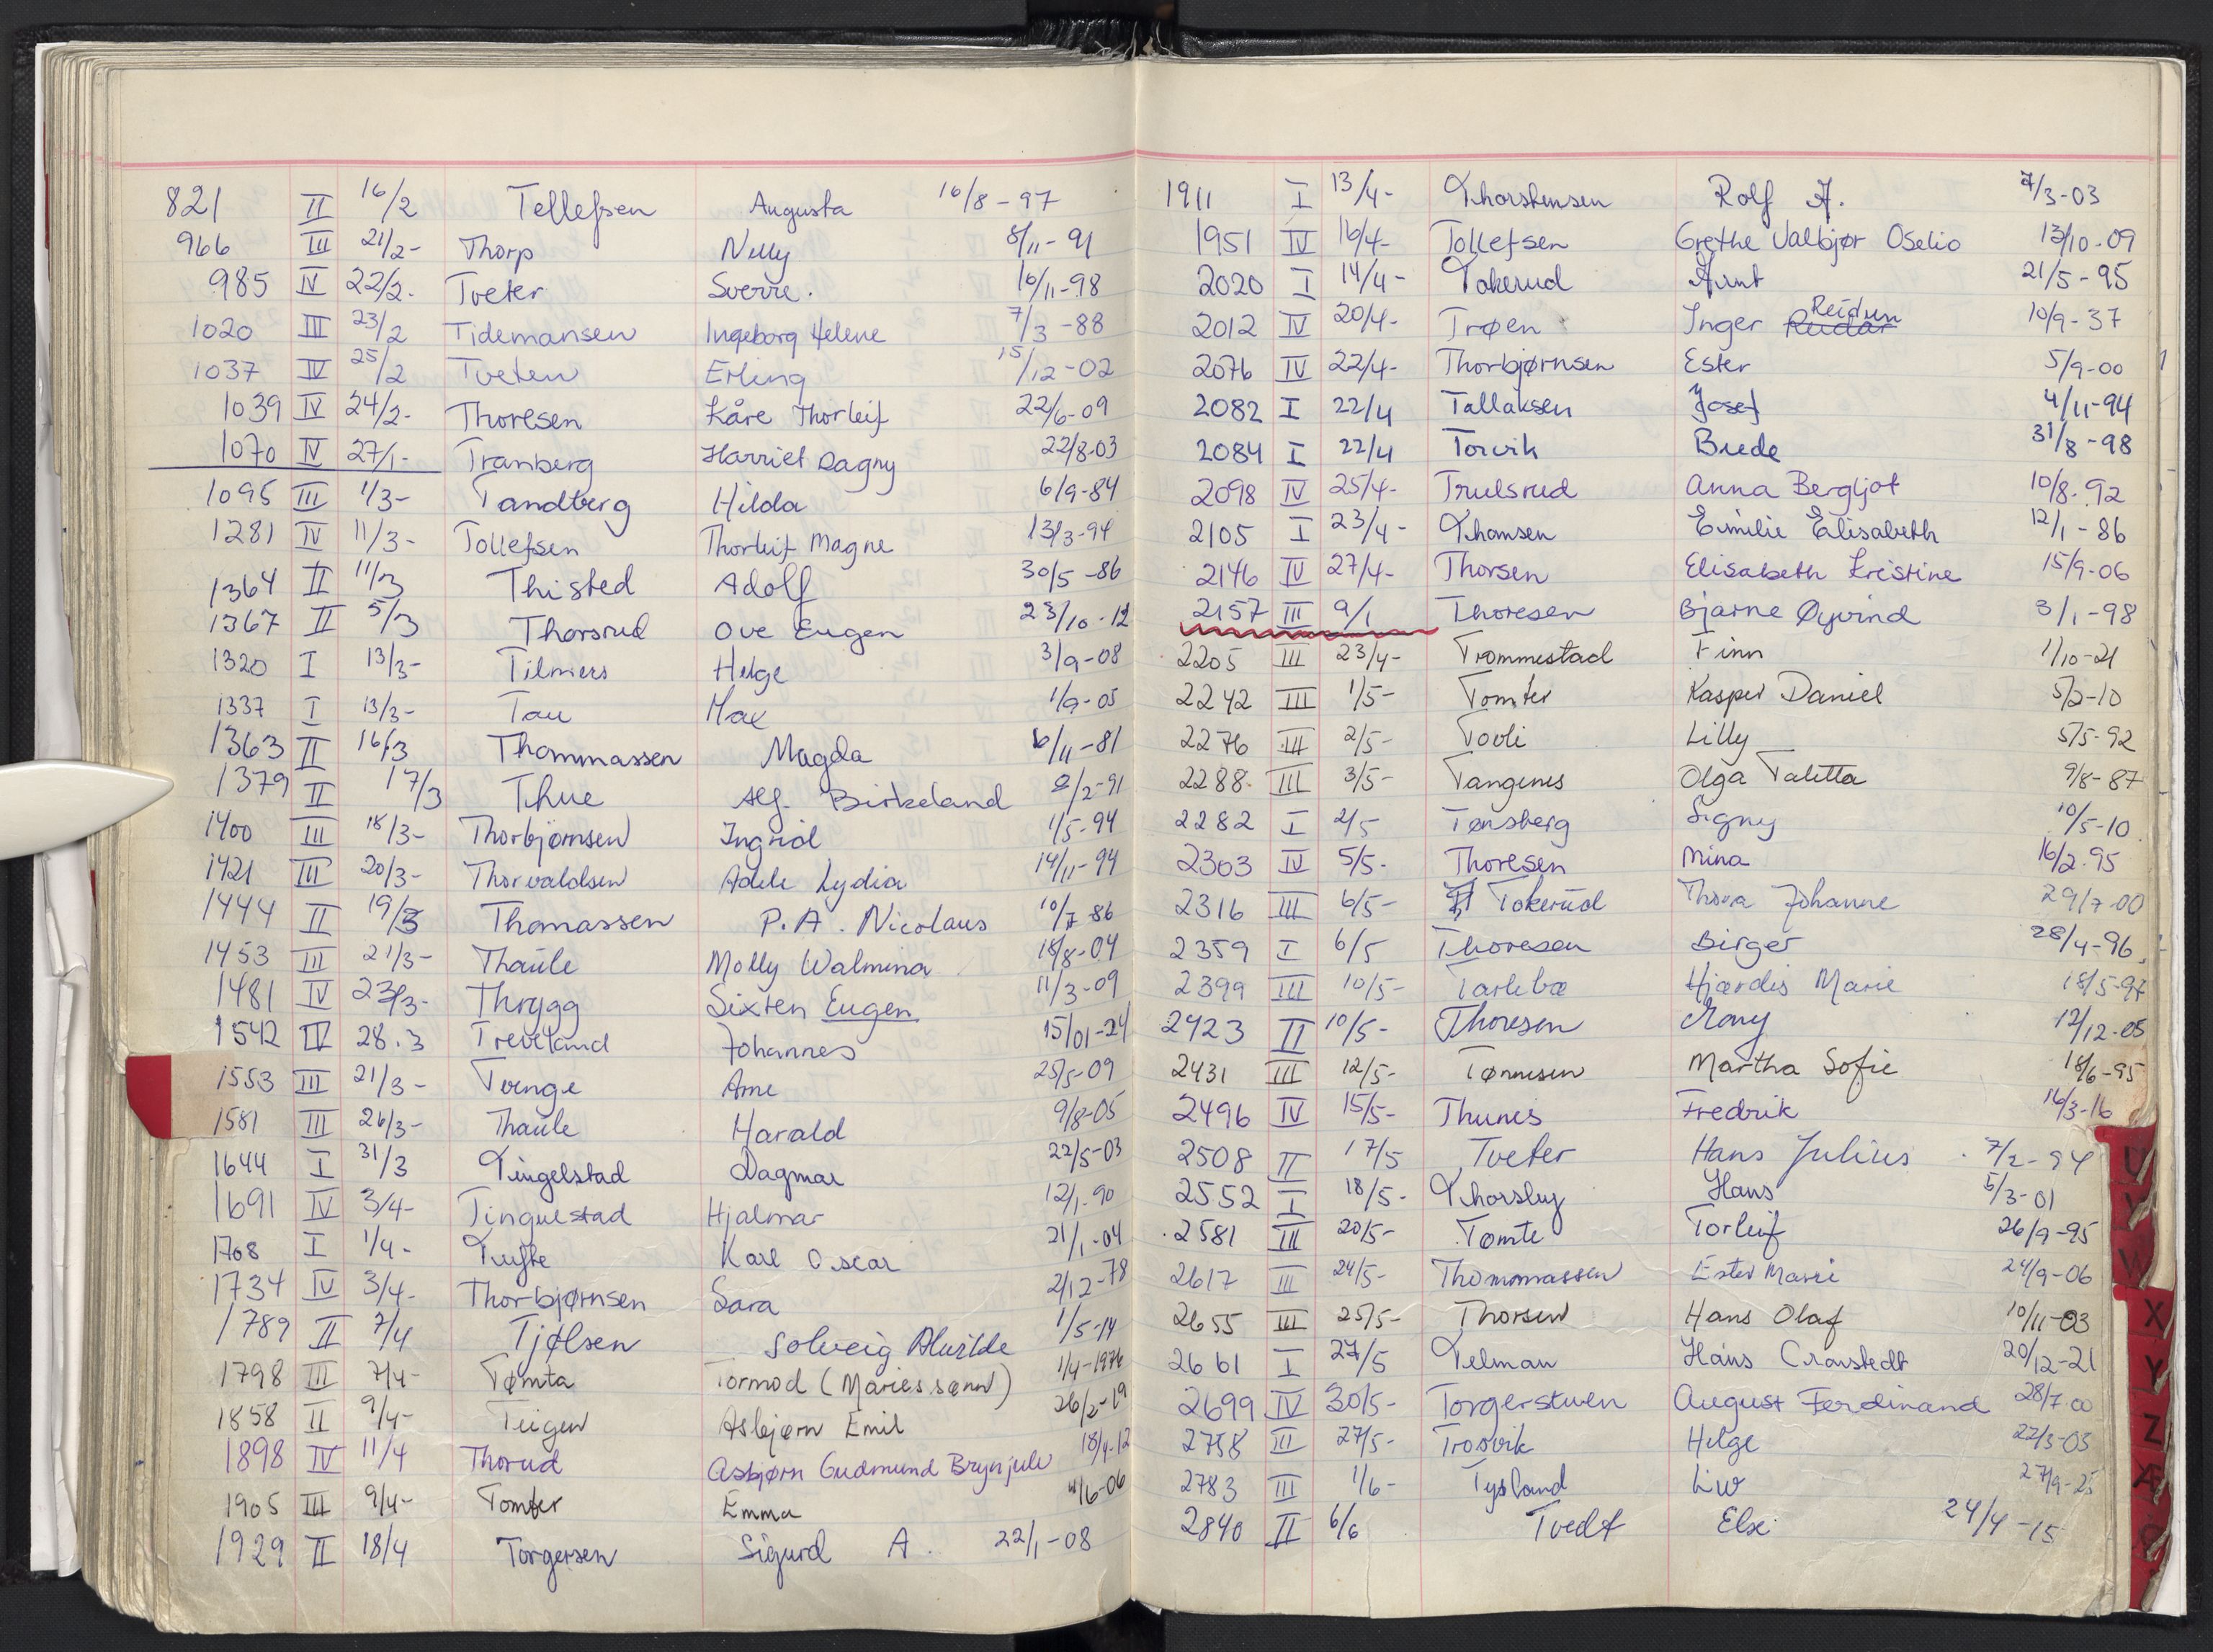 821 II 16/2 Tellefsen Augusta 16/8-97
966 III 21/2- Thorp Nelly 8/11-91
985 IV 22/2. Tveter Sverre. 16/11-98
1020 III 23/2 Tidemansen Ingeborg Helene 7/3-88
1037 IV 25/2 Tveten Erling 15/12-02
1039 IV 24/2- Thoresen Kåre Thorleif 22/6-09
1070 IV 27/1- Tranberg Harriet Dagny 22/8-03
1095 III 1/3- Tandberg Hilda 6/9-84
1281 IV 11/3- Tollefsen Thorleif Magne 13/3-94
1364 II 11/3 Thisted Adolf 30/5-86
1367 II 5/3 Thorsrud Ove Eugen 23/10-12
1320 I 13/3- Tilmers Helge 3/9-08
1337 I 13/3- Tau Max 1/9-05
1363 II 16/3 Thommassen Magda 6/11-81
1379 II 17/3 Thue Alf. Birkeland 2/2-91
1400 III 18/3- Thorbjørnsen Ingrid 1/5-94
1421 III 20/3- Thorvaldsen Adele Lydia 14/11-94
1444 II 19/3 Thomassen P.A. Nicolaus 10/7-86
1453 III 21/3- Thaule Molly Walmina 18/8-04
1481 IV 23/3- Thrygg Sixten Eugen 11/3-09
1542 IV 28.3 Treveland Johannes 15/01-24
1553 III 21/3- Tvenge Arne 25/5-09
1581 III 26/3- Thaule Harald 9/8-05
1644 I 31/3 Tingelstad Dagmar 22/5-03
1691 IV 3/4- Tingelstad Hjalmar 12/1-90
1708 I 1/4- Tufte Karl Oscar 21/1-04
1734 IV 3/4- Thorbjørnsen Sara 2/12-78
1789 II 7/4 Tjølsen Solveig Alvilde 1/5-14
1798 III 7/4- Tømta Tormod (Maries sønn) 1/4-1976
1858 II 9/4- Teigen Asbjørn Emil 26/2-19
1898 IV 11/4 Thorud Asbjørn Gudmund Brynjulv 18/4-12
1905 III 9/4- Tomter Emma 4/6-06
1929 II 18/4 Torgersen Sigurd A. 22/1-08
1911 I 13/4- Thorstensen Rolf A. 7/3-03
1951 IV 16/4- Tollefsen Grethe Valbjør Oselio 13/10-09
2020 I 14/4- Tokerud Arnt 21/5-95
2012 IV 20/4- Trøen Inger Reidar Reidun 10/9-37
2076 IV 22/4- Thorbjørnsen Ester 5/9-00
2082 I 22/4 Tallaksen Josef 4/11-94
2084 I 22/4 Torvik Brede 31/8-98
2098 IV 25/4- Trulsrud Anna Bergljot 10/8.92
2105 I 23/4- Thomsen Emilie Elisabeth 12/1-86
2146 IV 27/4- Thorsen Elisabeth Kristine 15/9-06
2157 III 9/1 Thoresen Bjarne Øyvind 3/1-98
2205 III 23/4- Trommestad Finn 1/10-21
2242 III 1/5- Tomter Kasper Daniel 5/2-10
2276 III 2/5- Tovli Lilly 5/5-92
2288 III 3/5- Tangenes Olga Talitta 9/8-87
2282 I 2/5 Tønsberg Signy 10/5-10
2303 IV 5/5- Thoresen Mina 16/2.95
2316 III 6/5- Tokerud Thora Johanne 29/7-00
2359 I 6/5 Thoresen Birger 28/4-96
2399 III 10/5- Tarlebø Hjørdis Marie 18/5-97
2423 II 10/5- Thoresen Rony 12/12-05
2431 III 12/5- Tønnesen Martha Sofie 18/6-95
2496 IV 15/5- Thunes Fredrik 16/3-16
2508 II 17/5 Tveter Hans Julius 7/2-94
2552 I 18/5- Thorsby Hans 5/3-01
2581 III 20/5- Tomte Torleif 26/9-95
2617 III 24/5- Thommassen Ester Marie 24/9-06
2655 III 25/5- Thorsen Hans Olaf 10/11-03
2661 I 27/5 Telman Hans Cronstedt 20/12-21
2699 IV 30/5- Torgerstuen August Ferdinand 28/7.00
2758 III 27/5- Trosvik Helge 22/3-03
2783 III 1/6- Tysland Liv 27/9-25
2840 II 6/6 Tvedt Else 24/4-15
U
V
W
X
Y
Z
Æ
Ø